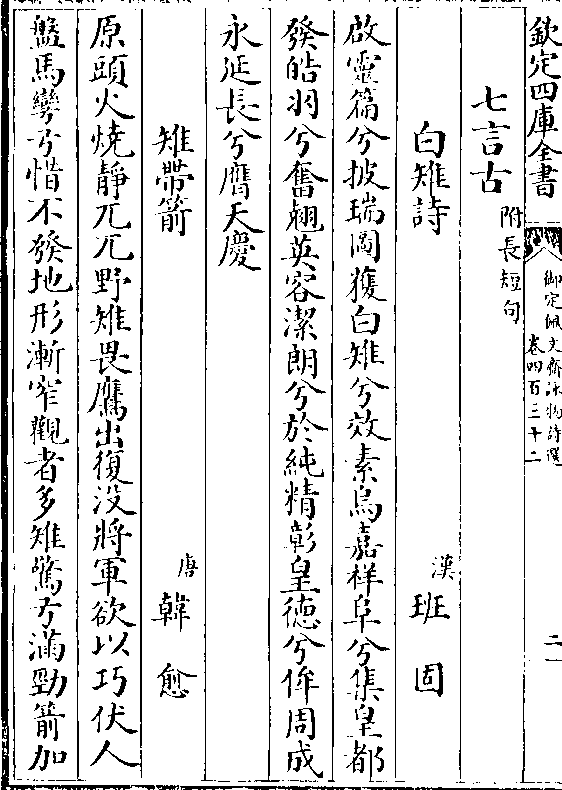 欽定四庫全書
御定佩文齋詠物詩選
卷四百三十二
二
七言古 附長短句
白雉詩 漢 班固
啟靈篇兮披瑞圖獲白雉兮效素烏嘉祥阜兮集皇都
發皓羽兮奮翹英容潔朗兮於純精彰皇德兮侔周成
永延長兮膺天慶
雉帶箭 唐 韓愈
原頭火燒靜兀兀野雉畏鷹出復没將軍欲以巧伏人
盤馬彎弓惜不發地形漸窄觀者多雉驚弓滿勁箭加